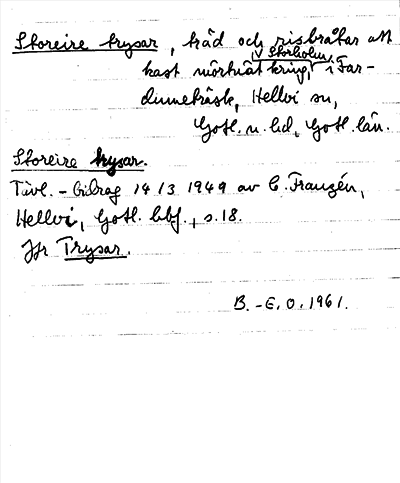 Storeire trysar, träd och risbråtar att
kast mörtnät kring, v Storholm, i Far-
dumeträsk, Hellvi sn,
Gotl. n. hd, Gotl. län.
Storeire trysar.
Tävl. - bidrag 14/3 1949 av C. Franzén,
Hellvi, Gotl. bbf., s. 18.
Jfr Trysar.
B. - E. O. 1961.